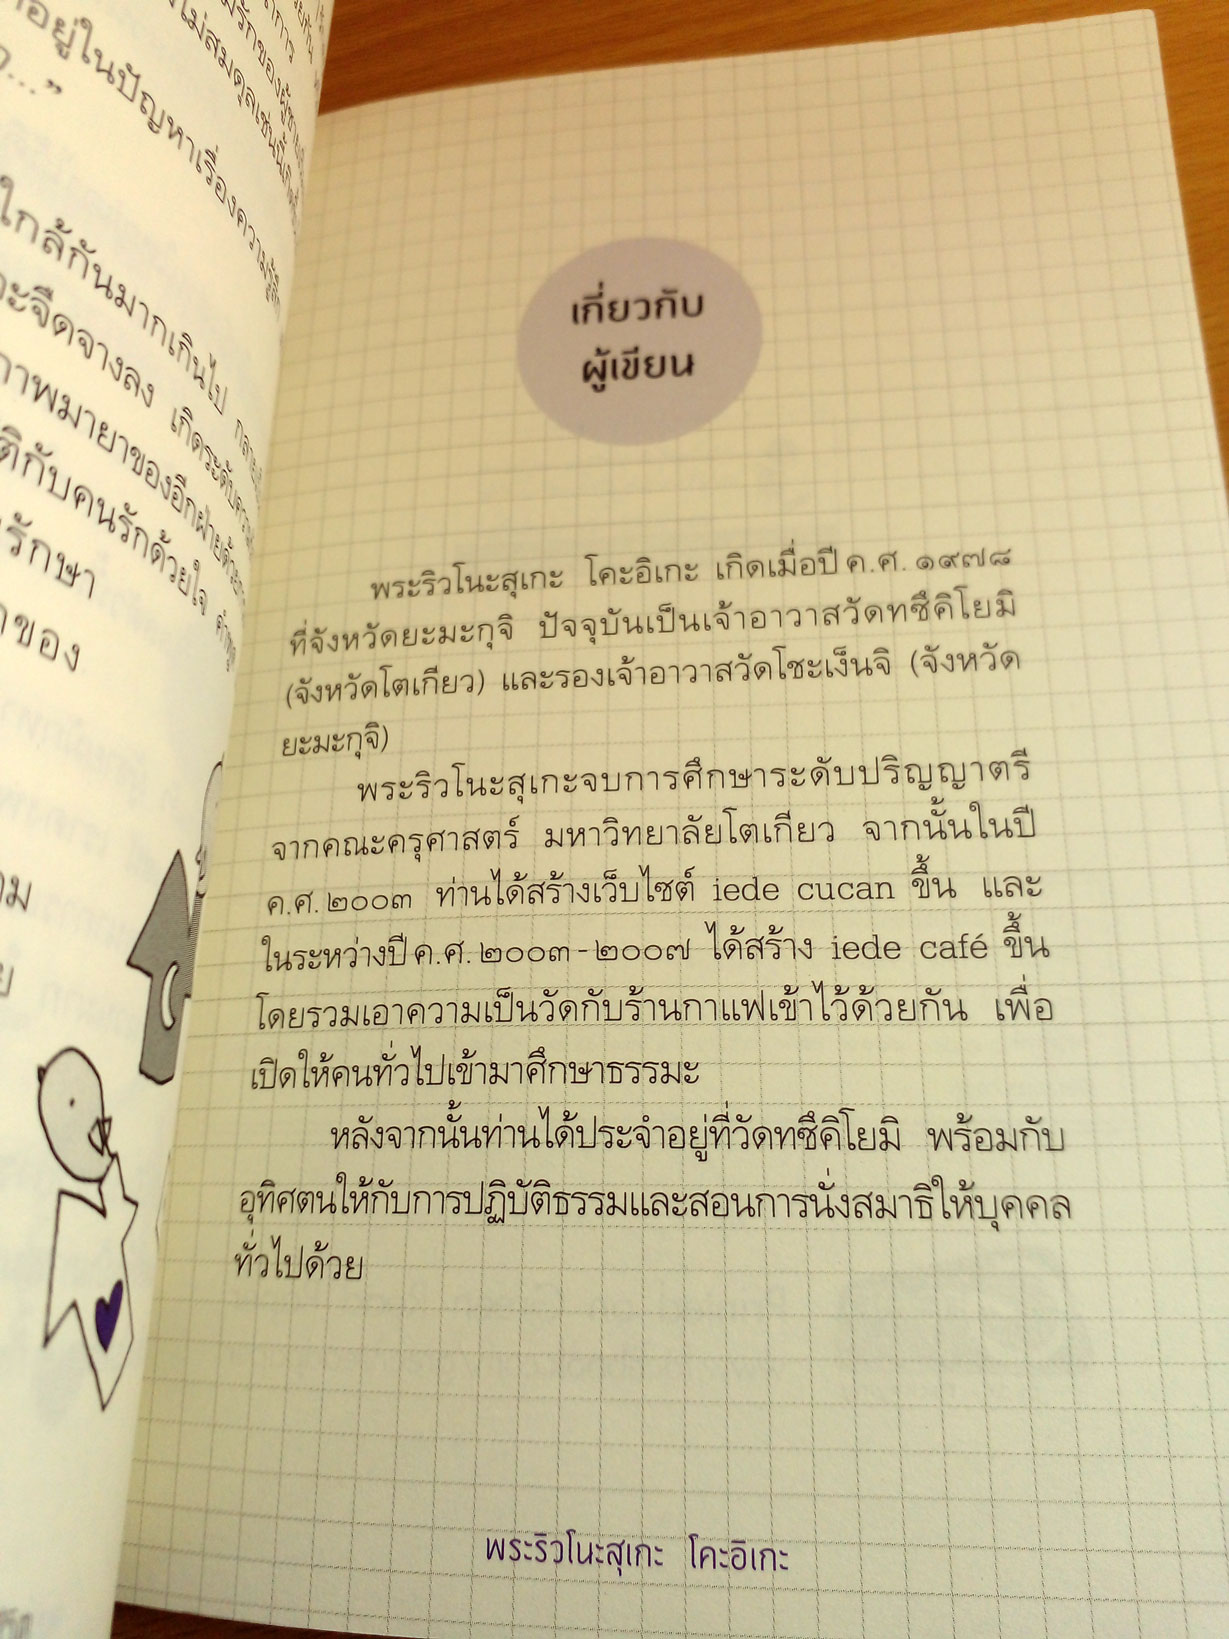 อยู่ในปัญหาเรื่องความรู้สึก
ใกล้กันมากเกินไป
จืดจางลง เกิดระดับความ
ภาพมายาของอีกฝ่ายด้วย
กับคนรักด้วยใจ
รักษา
ของ
เกี่ยวกับ
ผู้เขียน
พระริวโนะสุเกะ โคะอิเกะ เกิดเมื่อปี ค.ศ. ๑๙๗๘
ที่จังหวัดยะมะกุจิ ปัจจุบันเป็นเจ้าอาวาสวัดทซึคิโยมิ
(จังหวัดโตเกียว) และรองเจ้าอาวาสวัดโชะเง็นจิ (จังหวัด
ยะมะกุจิ)
พระริวโนะสุเกะจบการศึกษาระดับปริญญาตรี
จากคณะครุศาสตร์ มหาวิทยาลัยโตเกียว จากนั้นในปี
ค.ศ. ๒๐๐๓ ท่านได้สร้างเว็บไซต์ iede cucan ขึ้น และ
ในระหว่างปี ค.ศ. ๒๐๐๓-๒๐๐๗ ได้สร้าง iede café ขึ้น
โดยรวมเอาความเป็นวัดกับร้านกาแฟเข้าไว้ด้วยกัน เพื่อ
เปิดให้คนทั่วไปเข้ามาศึกษาธรรมะ
หลังจากนั้นท่านได้ประจำอยู่ที่วัดทซึคิโยมิ พร้อมกับ
อุทิศตนให้กับการปฏิบัติธรรมและสอนการนั่งสมาธิให้บุคคล
ทั่วไปด้วย
พระริวโนะสุเกะ โคะอิเกะ